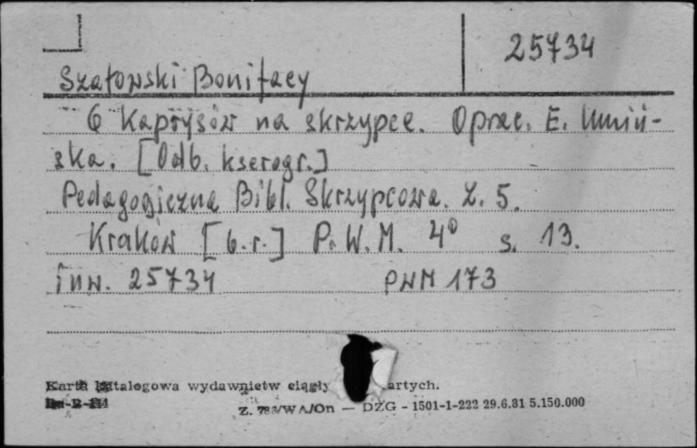 25734
Szałowski Bonifacy
6 Kaprysów na skrzypce. Oprac. E. Umiń-
ska. [Odb. kserogr.]
Pedagogiczna Bibl. Skrzypcowa. Z. 5.
Kraków [b.r.] P.W.M. 4° s. 13.
inw. 25734 PWM 173
Karta katalogowa wydawnictw ciągły artych.
Z. /WA/On — DZG - 1501-1-222 29.6.81 5.150.000